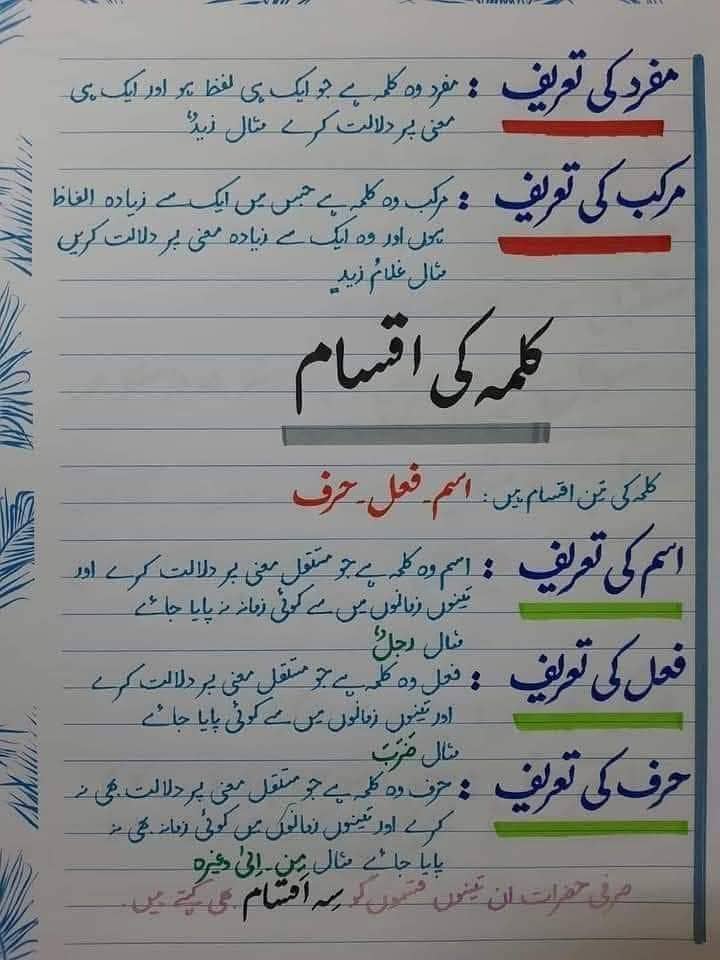 مفرد کی تعریف : مفرد وہ کلمہ ہے جو ایک ہی لفظ ہو اور ایک ہی
معنی پر دلالت کرے مثال زیدٌ
مرکب کی تعریف : مرکب وہ کلمہ ہے جس میں ایک سے زیادہ الفاظ
ہوں اور وہ ایک سے زیادہ معنی پر دلالت کریں
مثال غلامُ زیدٍ
کلمہ کی اقسام
کلمہ کی تین اقسام ہیں: اسم۔ فعل۔ حرف
اسم کی تعریف : اسم وہ کلمہ ہے جو مستقل معنی پر دلالت کرے اور
تینوں زمانوں میں سے کوئی زمانہ نہ پایا جائے
مثال رجلٌ
فعل کی تعریف : فعل وہ کلمہ ہے جو مستقل معنی پر دلالت کرے
اور تینوں زمانوں میں سے کوئی پایا جائے
مثال ضَرَبَ
حرف کی تعریف : حرف وہ کلمہ ہے جو مستقل معنی پر دلالت بھی نہ
کرے اور تینوں زمانوں میں کوئی زمانہ بھی نہ
پایا جائے مثال مِن۔ اِلیٰ وغیرہ
صرفی حضرات ان تینوں قسموں کو سِہ اَقسام بھی کہتے ہیں۔